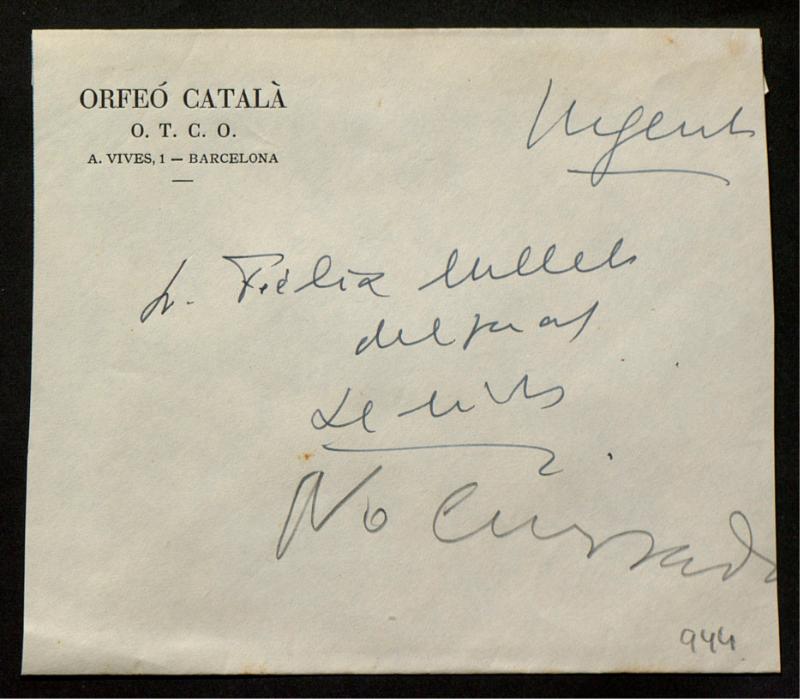 ORFEÓ CATALÀ
O. T. C. O.
A. VIVES, 1 — BARCELONA
Urgent
Sr. Fèlix Millet
No Cursada
944